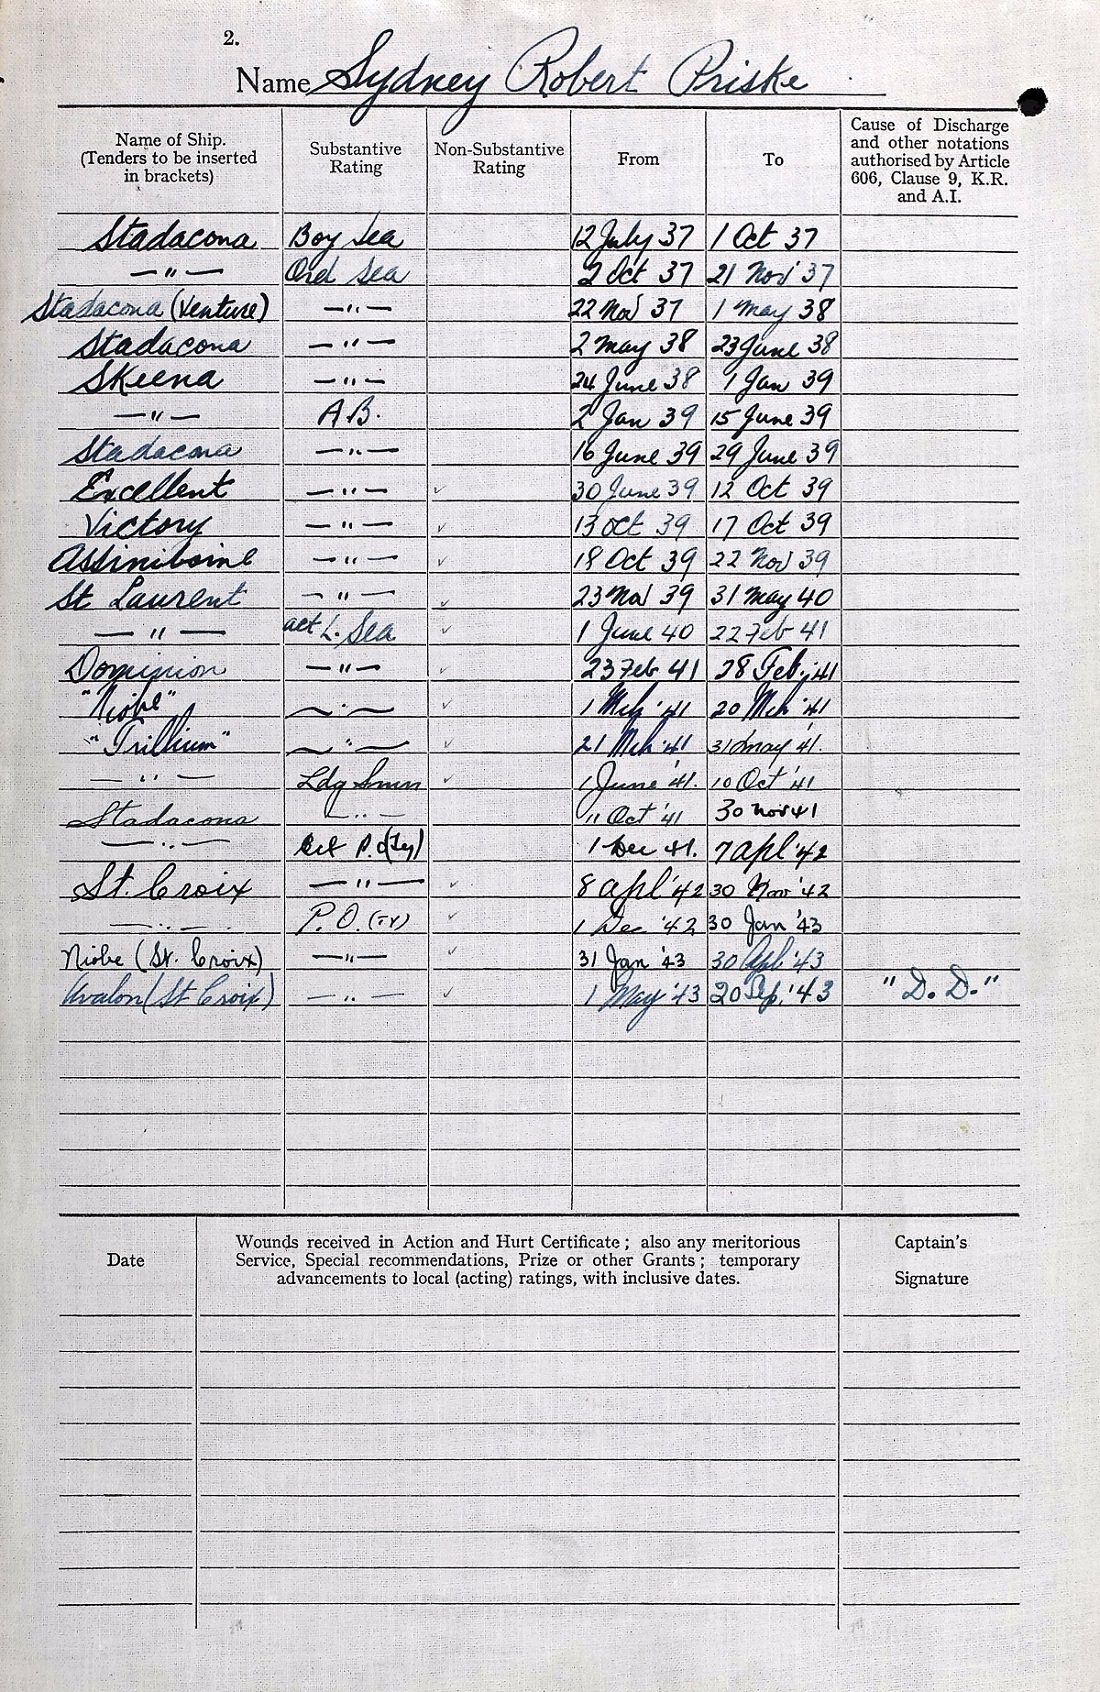 2.
Name Sydney Robert Priske
Name of Ship. (Tenders to be inserted in brackets) Substantive Rating Non-Substantive Rating From To Cause of Discharge and other notations authorised by Article 606, Clause 9, K.R. and A.I.
Stadacona Boy Sea 12 July 37 1 Oct 37
— " — Ord Sea 2 Oct 37 21 Nov 37
Stadacona (Venture) — " — 22 Nov 37 1 May 38
Stadacona — " — 2 May 38 23 June 38
Skeena — " — 24 June 38 1 Jan 39
— " — A.B. 2 Jan 39 15 June 39
Stadacona — " — 16 June 39 29 June 39
Excellent — " — ✓ 30 June 39 12 Oct 39
Victory — " — ✓ 13 Oct 39 17 Oct 39
Assiniboine — " — ✓ 18 Oct 39 22 Nov 39
St Laurent — " — ✓ 23 Nov 39 31 May 40
— " — act L. Sea ✓ 1 June 40 22 Feb 41
Dominion — " — ✓ 23 Feb 41 28 Feb, 41
"Niobe" — " — ✓ 1 Mch '41 20 Mch '41
"Trillium" — " — ✓ 21 Mch '41 31 May '41.
— " — Ldg Smn ✓ 1 June '41. 10 Oct '41
Stadacona — " — 11 Oct '41 30 Nov 41
— " — Act P.O (Ty) 1 Dec 41. 7 Apl '42
St. Croix — " — ✓ 8 Apl '42 30 Nov '42
— " — P.O. (TY) ✓ 1 Dec '42 30 Jan '43
Niobe (St. Croix) — " — ✓ 31 Jan '43 30 Apl '43
Avalon (St Croix) — " — ✓ 1 May '43 20 Sep. '43 "D. D."
Date Wounds received in Action and Hurt Certificate; also any meritorious Service, Special recommendations, Prize or other Grants; temporary advancements to local (acting) ratings, with inclusive dates. Captain's Signature